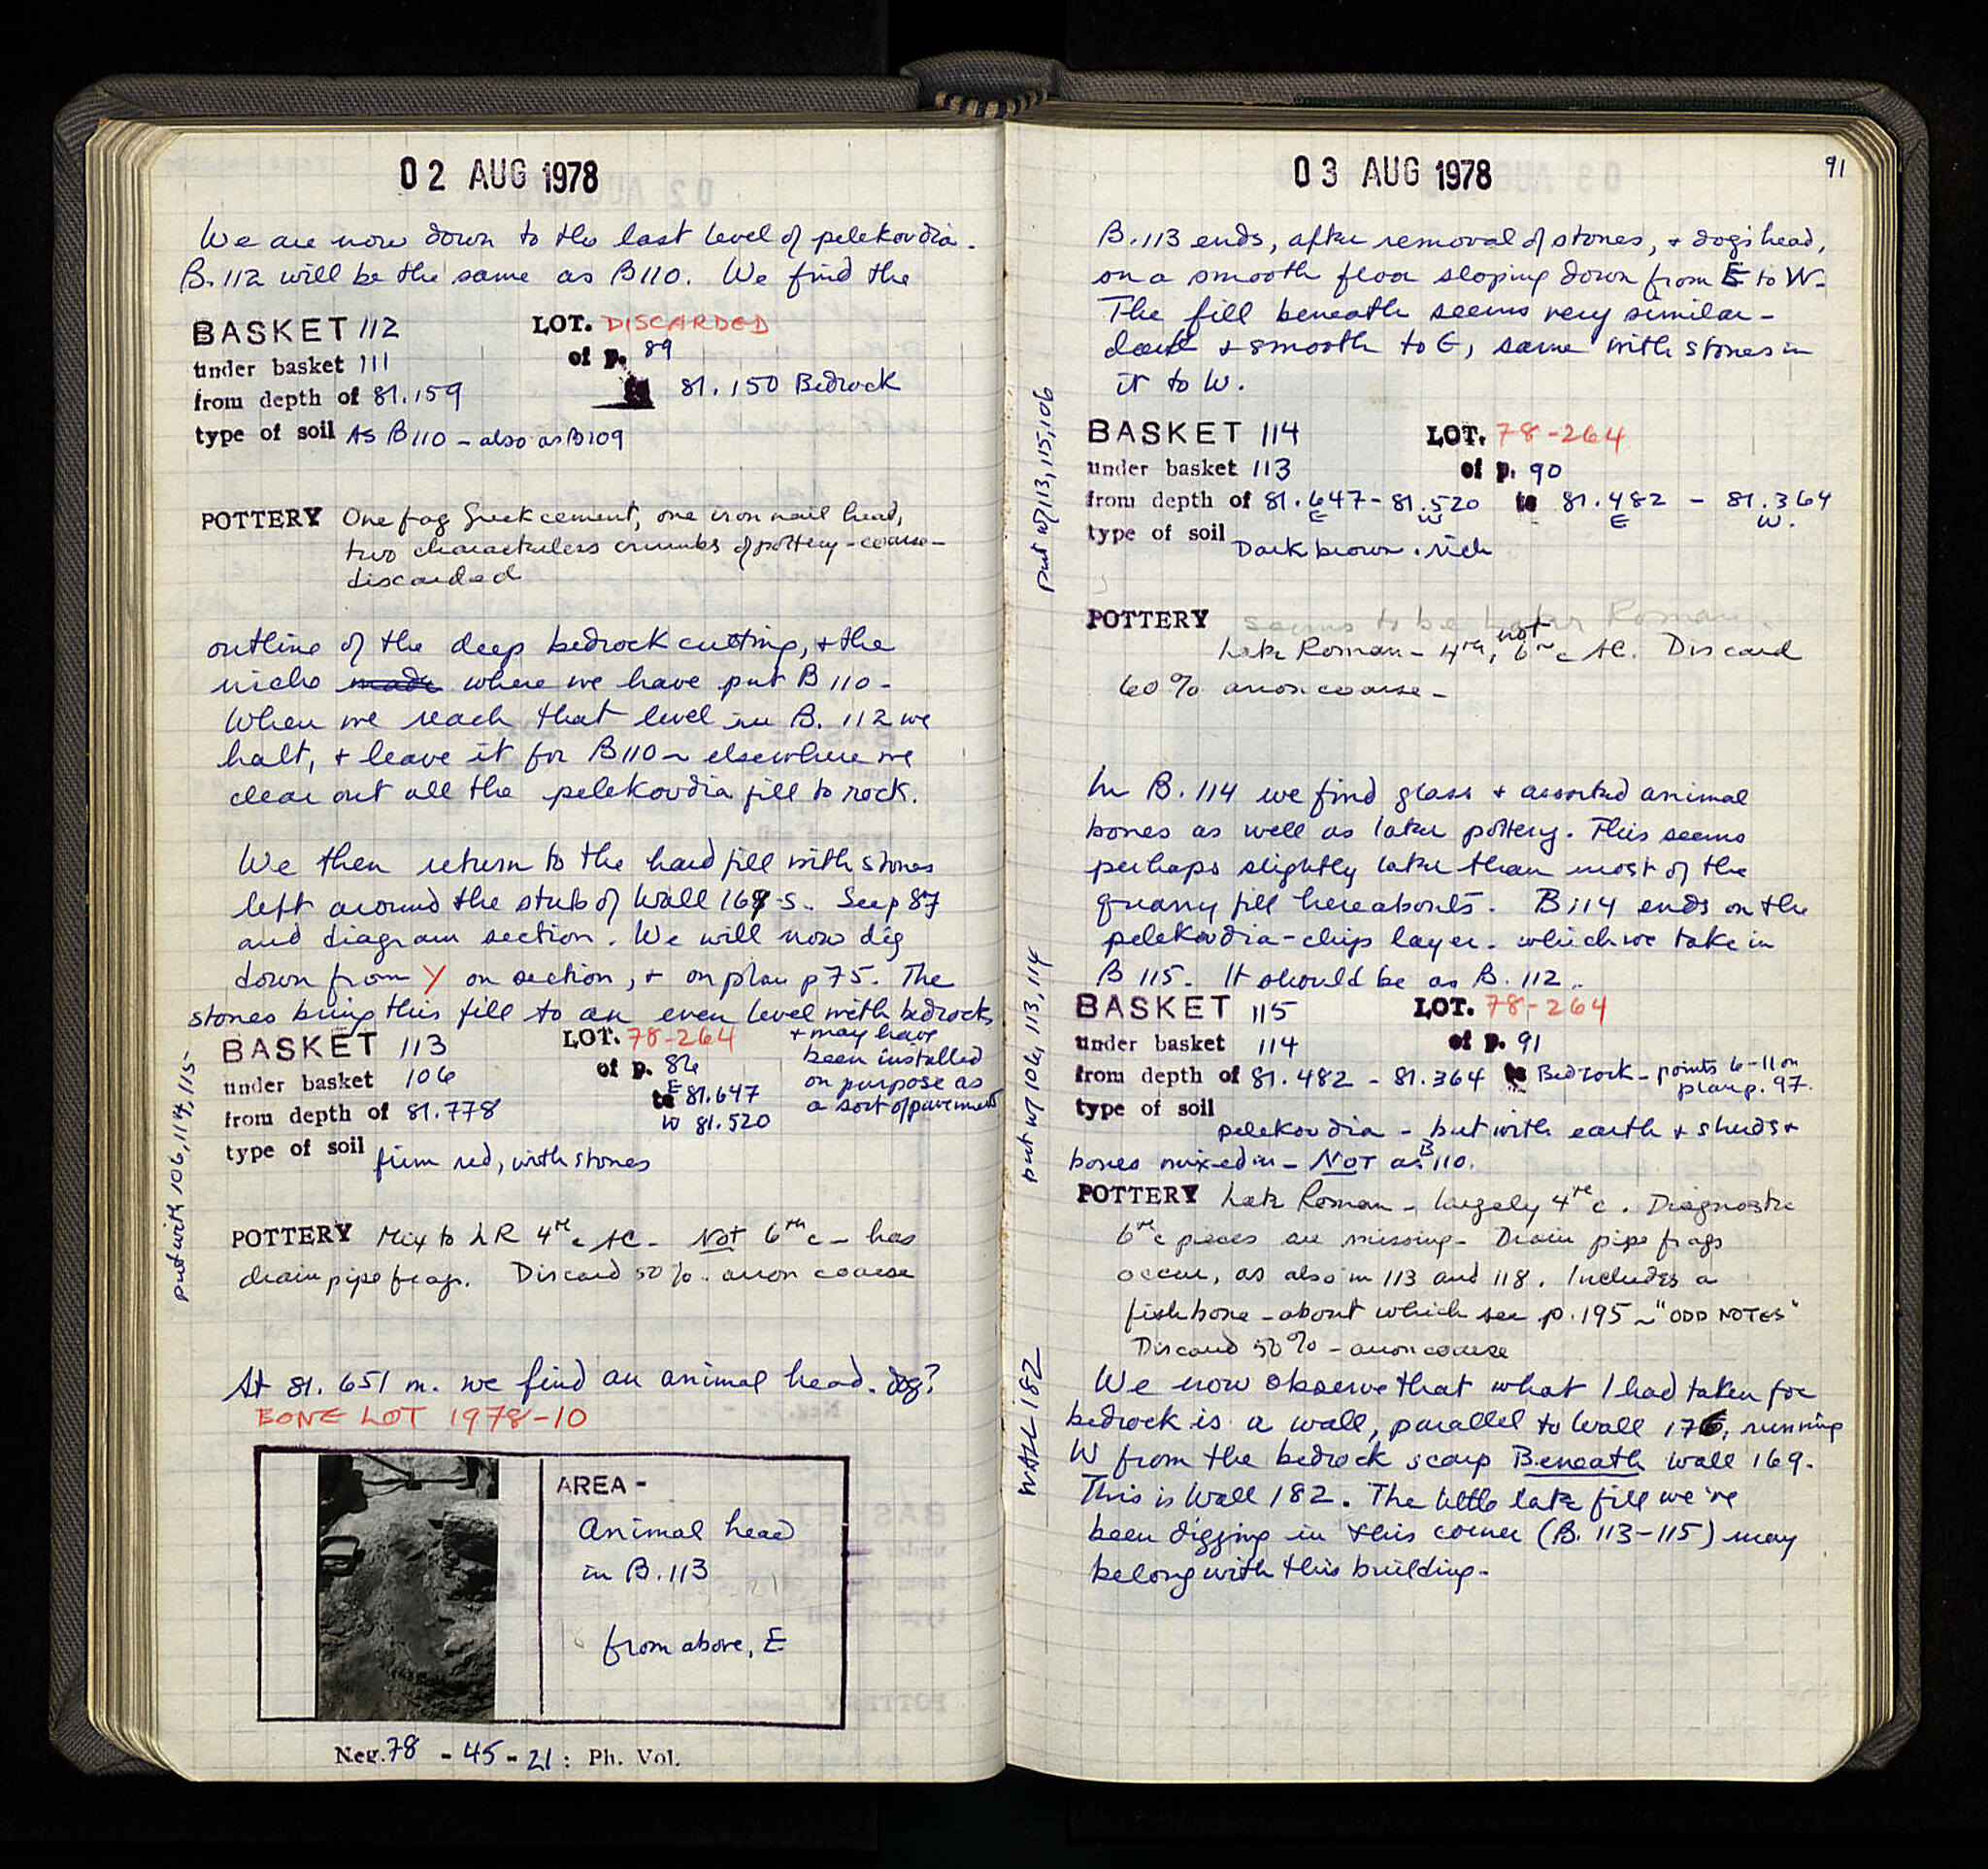 02 AUG 1978
We are now down to the last level of pelekoudia.
B.112 will be the same as B110. We find the
BASKET 112 LOT. DISCARDED
under basket 111 of p. 89
from depth of 81.159 to 81.150 Bedrock
type of soil AS B110 - also as B109
POTTERY One frag Greek cement, one iron nail head,
two characterless crumbs of pottery - coarse -
discarded
outline of the deep bedrock cutting, + the
niche made where we have put B110 -
When we reach that level in B. 112 we
halt, + leave it for B110 ~ elsewhere we
clear out all the pelekoudia fill to rock.
We then return to the hard fill with stones
left around the stub of Wall 169-S. See p 87
and diagram section. We will now dig
down from Y on section, + on plan p 75. The
stones bring this fill to an even level with bedrock,
+ may have
been installed
on purpose as
a sort of pavement
BASKET 113 LOT. 78-264
under basket 106 of p. 86
from depth of 81.778 to E 81.647
W 81.520
type of soil firm red, with stones
put with 106, 114, 115-
POTTERY Mix to LR 4th c AC - Not 6th c - has
drain pipe frags. Discard 50%. anon coarse
At 81.651 m. we find an animal head. dog?
BONE LOT 1978-10
AREA -
Animal head
in B.113
from above, E
Neg. 78 - 45 - 21 : Ph. Vol.
03 AUG 1978
91
B.113 ends, after removal of stones, + dog's head,
on a smooth floor sloping down from E to W-
The fill beneath seems very similar -
dark + smooth to E, same with stones in
it to W.
put w/ 113, 115, 106
BASKET 114 LOT. 78-264
under basket 113 of p. 90
from depth of 81.647 - 81.520 to 81.482 - 81.364
E W E W.
type of soil Dark brown. rich
POTTERY seems to be Later Roman.
Late Roman - 4th, not 6th c AC. Discard
60% anon coarse -
In B.114 we find glass + assorted animal
bones as well as later pottery. This seems
perhaps slightly later than most of the
quarry fill hereabouts. B114 ends on the
pelekoudia-chip layer - which we take in
B 115. It should be as B. 112..
put w/ 106, 113, 114
BASKET 115 LOT. 78-264
under basket 114 of p. 91
from depth of 81.482 - 81.364 to Bedrock - points 6-11 on
plan p. 97.
type of soil pelekoudia - but with earth + sherds +
bones mixed in - NOT as B110.
POTTERY Late Roman - largely 4th c. Diagnostic
6th c pieces are missing - Drain pipe frags
occur, as also in 113 and 118. Includes a
fishbone - about which see p. 195 ~ "ODD NOTES"
Discard 50% - anon coarse
WALL 182
We now observe that what I had taken for
bedrock is a wall, parallel to Wall 176, running
W from the bedrock scarp Beneath wall 169.
This is Wall 182. The little late fill we've
been digging in this corner (B. 113-115) may
belong with this building -